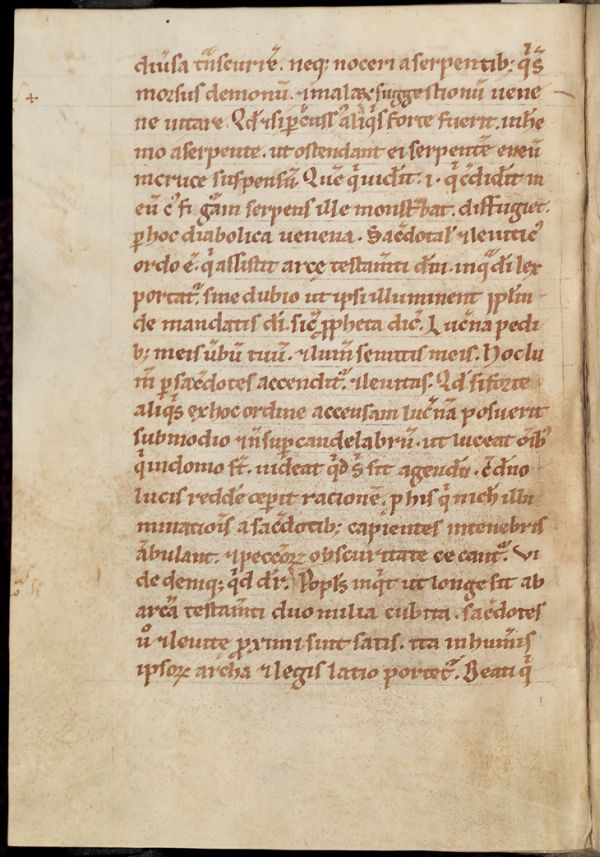 diũsa tᷓnscurrẽ. neq; noceri a serpentib; q̃s
morsus demonũ. ⁊ imalaꝝ suggestionũ uene
ne uitare. Qđ ⁊ si ꝑcuss᷒ aliq̃s forte fuerit. uihe
mo a serpente. ut ostendant ei serpentẽ eneũ
in cruce suspensũ. Quẽ q̃ uiđit. i. q̃ c̃didit in
eũ
serpens ille monst̃bat. diffugiet.
ꝑ hoc diabolica uenena. Sac̃dotal᷒ ⁊ leuitic᷒
ordo ẽ. q̃ assistit arcę testam̃ti dñi. in q̃ di lex
portat᷑. sine dubio ut ipsi illuminent ꝓplm̃
de mandatis di. sic̃ ꝓpheta dic̃. Luc̃na pedi
b; meis ũbũ tuũ. ⁊ lum̃ semitis meis. Hoc lu
m̃ ꝑ sac̃dotes accendit᷑. ⁊ leuitas. Qđ si forte
aliq̃s ex hoc ordine accensam luc̃nã posuerit
sub modio ⁊ ñ sup̃ candelabrũ. ut luceat om̃ib᷒
q̃ in domo st̃. uideat q̃d s̃ sit agendũ. c̃ dño
lucis reddẽ ceperit rationẽ. ꝓ his q̃ nich̃ illu
minatiõis a sac̃dotib; capientes in tenebris
ãbulant. ⁊ peccõꝝ obscuritate cecant᷑. Vi
de deniq; q̃d dr̃. Popl᷒ inq̃t ut longe sit ab
arcã testam̃ti duo milia cubita. sac̃dotes
uͦ ⁊ leuitę ꝓximi sint satis. ita in hum̃is
ipsoꝝ archa ⁊ legis latio portet᷑. Beati q̃